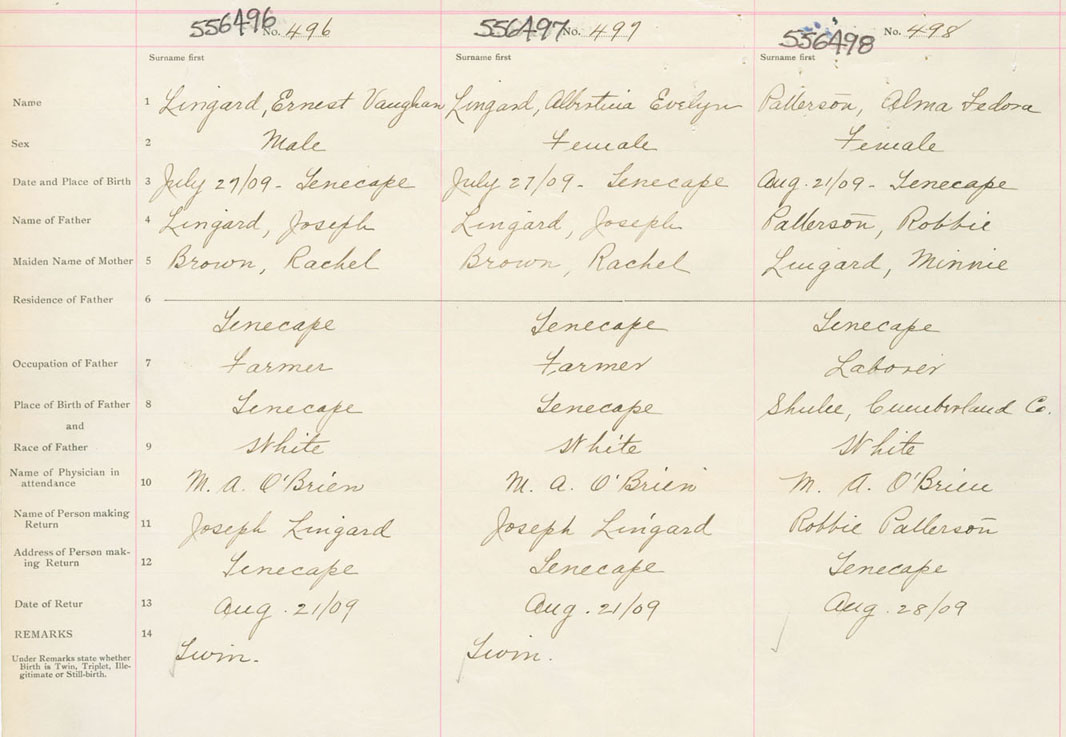 556496 No. 496 556497 No. 497 556498 No. 498
Surname first Surname first Surname first
Name 1 Lingard, Ernest Vaughan Lingard, Albertina Evelyn Patterson, Alma Fedora
Sex 2 Male Female Female
Date and Place of Birth 3 July 27/09 - Tenecape July 27/09 - Tenecape Aug. 21/09 - Tenecape
Name of Father 4 Lingard, Joseph Lingard, Joseph Patterson, Robbie
Maiden Name of Mother 5 Brown, Rachel Brown, Rachel Lingard, Minnie
Residence of Father 6
Tenecape Tenecape Tenecape
Occupation of Father 7 Farmer Farmer Laborer
Place of Birth of Father 8 Tenecape Tenecape Shulee, Cumberland Co.
and
Race of Father 9 White White White
Name of Physician in
attendance 10 M. A. O'Brien M. A. O'Brien M. A. O'Brien
Name of Person making
Return 11 Joseph Lingard Joseph Lingard Robbie Patterson
Address of Person mak-
ing Return 12 Tenecape Tenecape Tenecape
Date of Retur 13 Aug. 21/09 Aug. 21/09 Aug. 28/09
REMARKS 14
Under Remarks state whether
Birth is Twin, Triplet, Ille-
gitimate or Still-birth.
Twin. Twin.